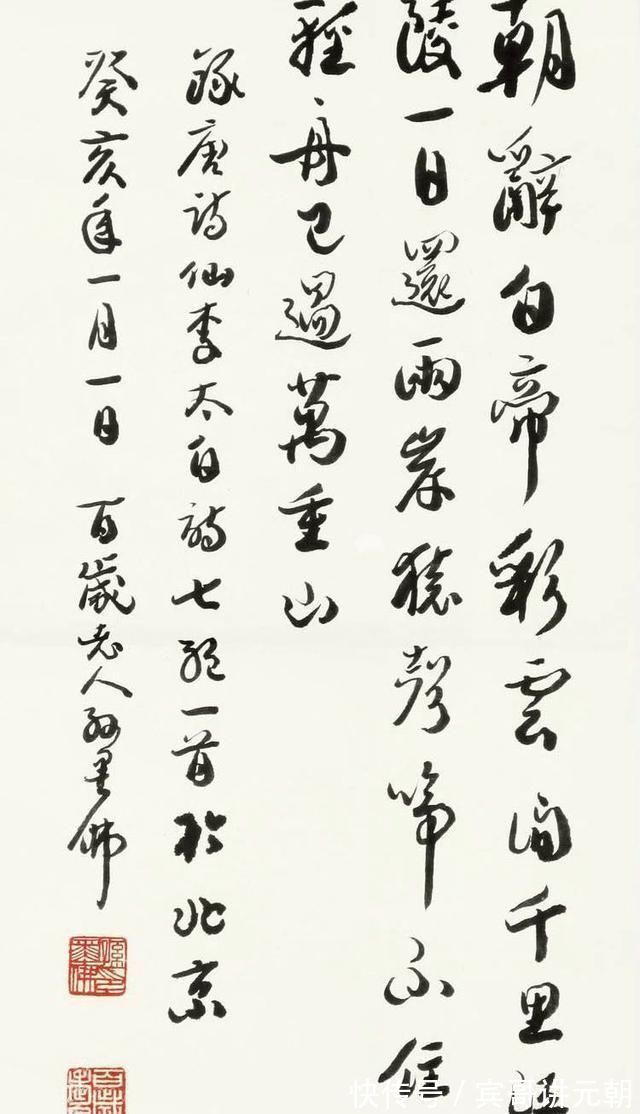 朝辭白帝彩雲間千里
陵一日還兩岸猿聲啼不住
輕舟已過萬重山
錄唐詩仙李太白詩七絕一首於北京
癸亥年一月一日 百歲老人孫墨佛
快传号 / 宾哥讲元朝